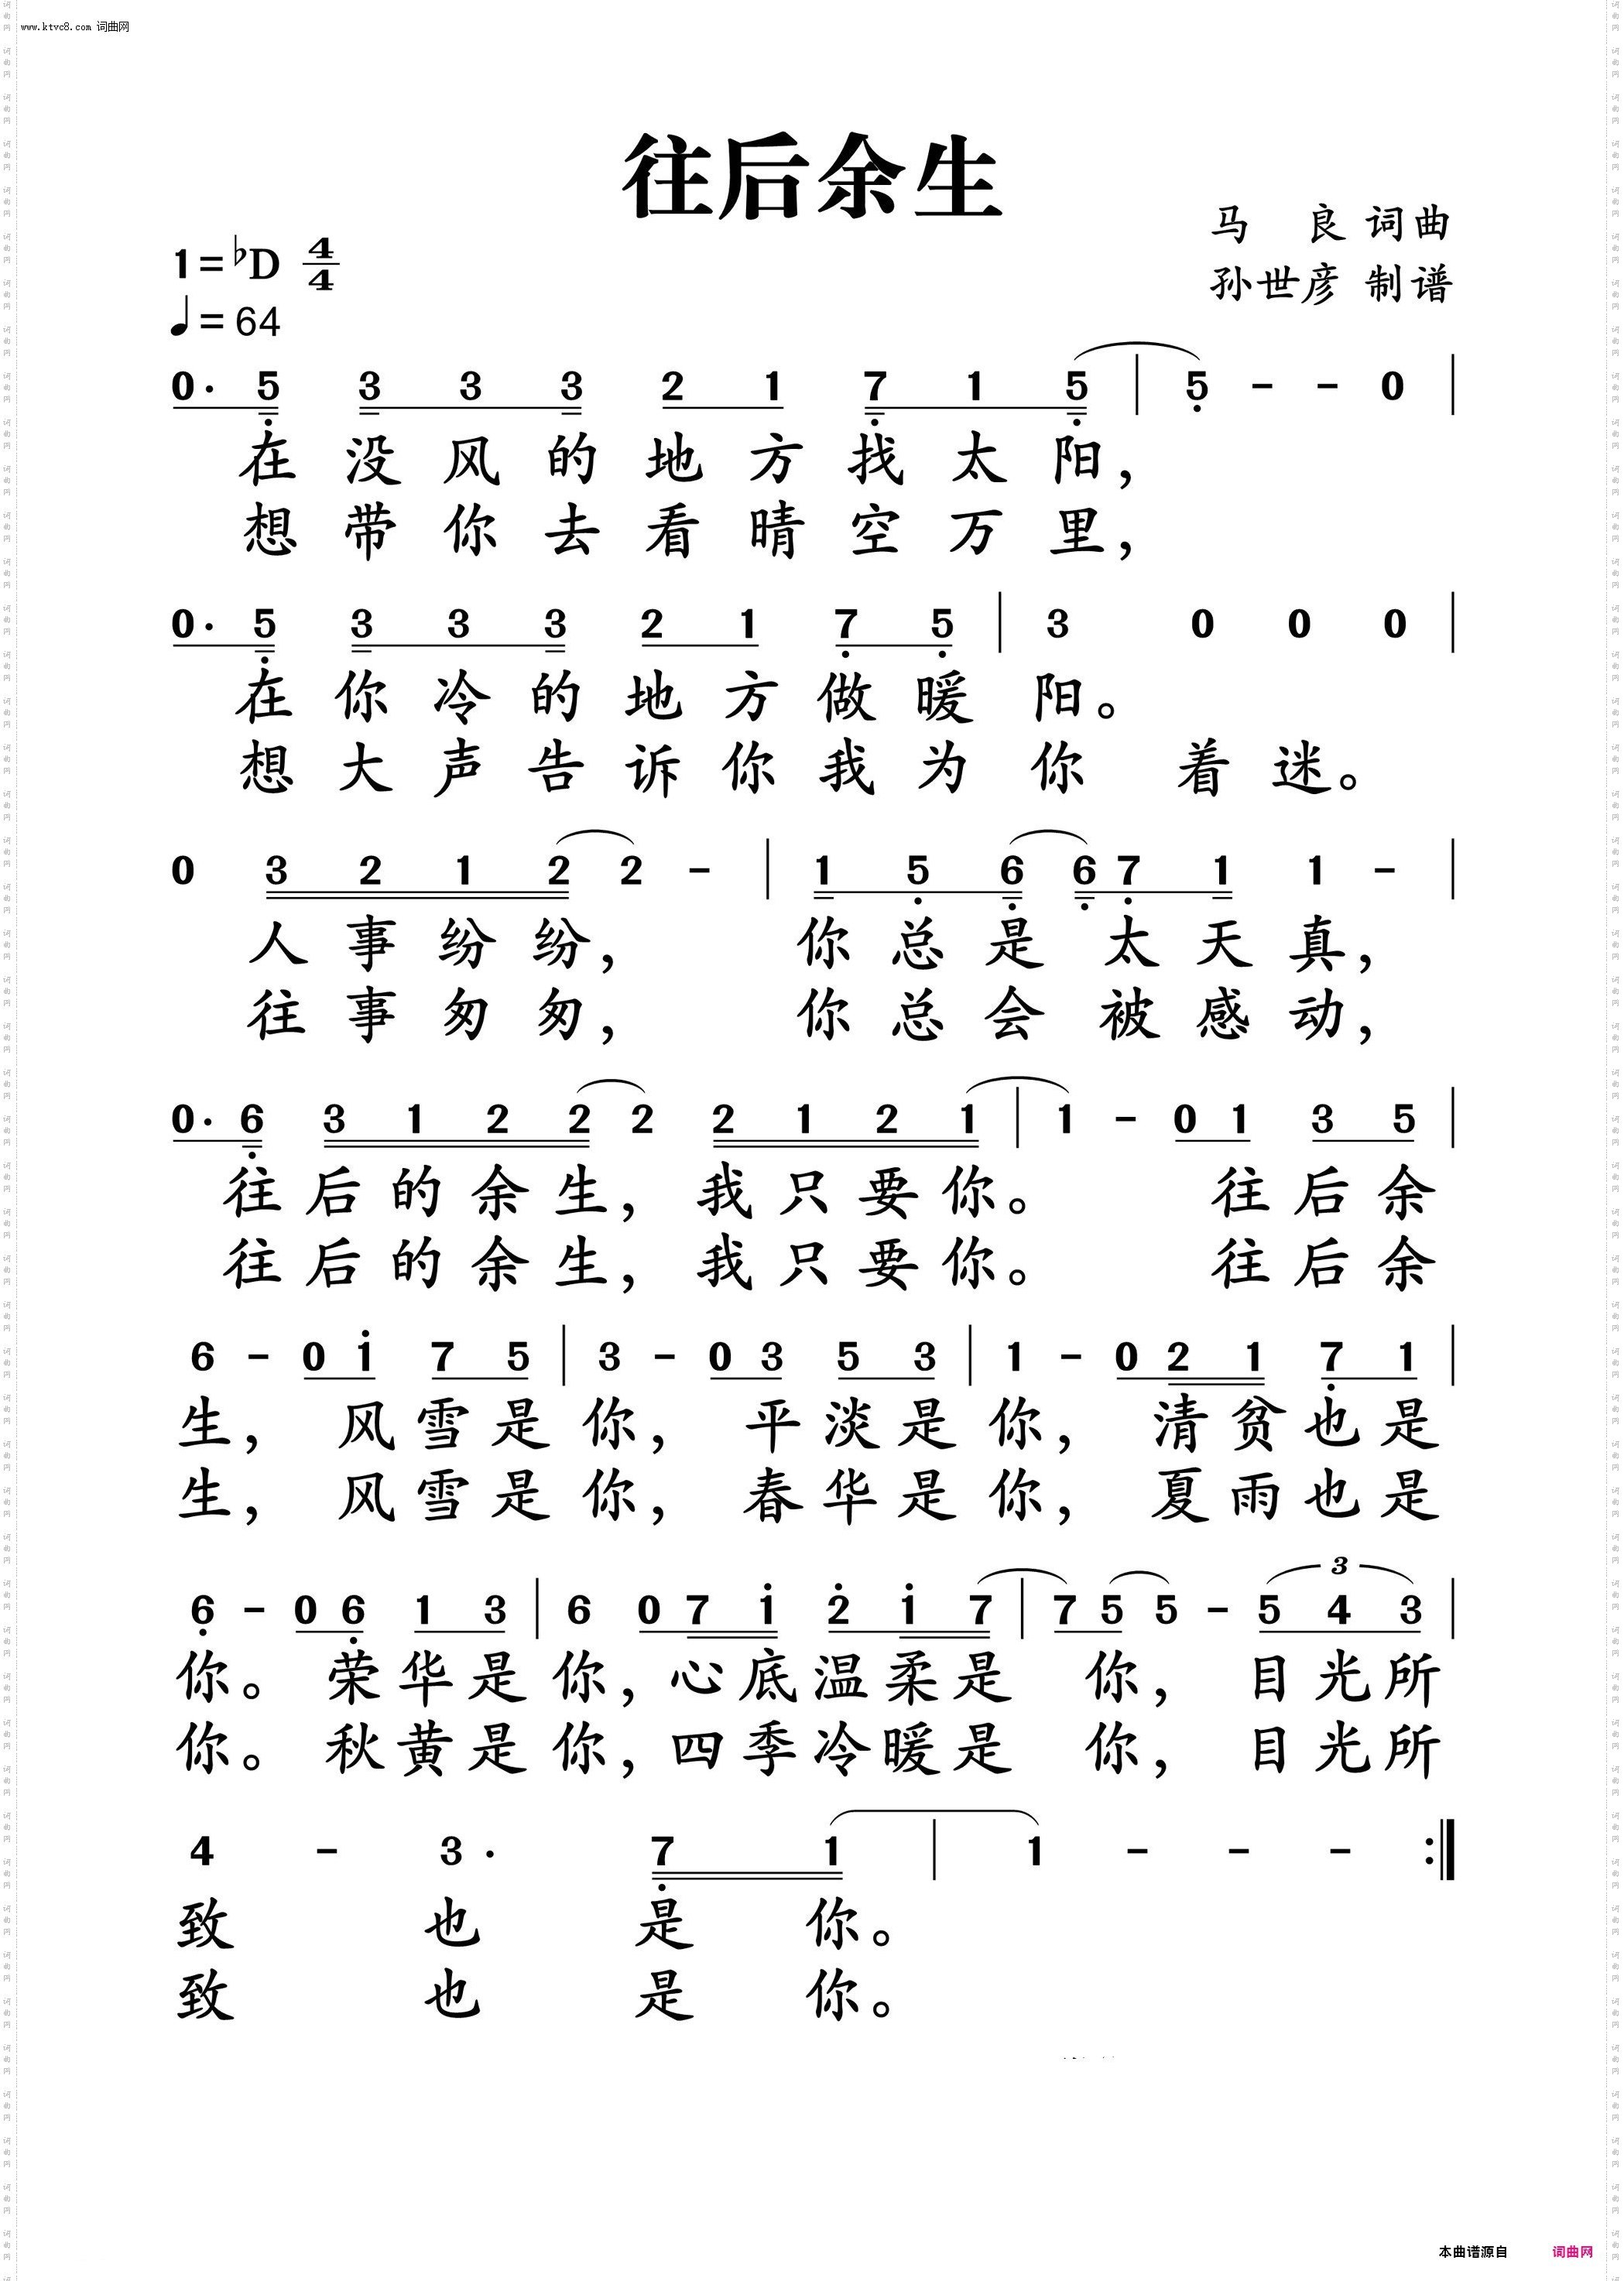 www.ktvc8.com 词曲网
往后余生
马 良 词曲
1=♭D 4/4
孙世彦 制谱
♩=64
0· 5 3 3 3 2 1 7 1 5 | 5 - - 0 |
在没风的地方找太阳，
想带你去看晴空万里，
0· 5 3 3 3 2 1 7 5 | 3 0 0 0 |
在你冷的地方做暖阳。
想大声告诉你我为你着迷。
0 3 2 1 2 2 - | 1 5 6 6 7 1 1 - |
人事纷纷， 你总是太天真，
往事匆匆， 你总会被感动，
0· 6 3 1 2 2 2 2 1 2 1 | 1 - 0 1 3 5 |
往后的余生，我只要你。 往后余
往后的余生，我只要你。 往后余
6 - 0 1 7 5 | 3 - 0 3 5 3 | 1 - 0 2 1 7 1 |
生， 风雪是你， 平淡是你， 清贫也是
生， 风雪是你， 春华是你， 夏雨也是
6 - 0 6 1 3 | 6 0 7 1 2 1 7 | 7 5 5 - 5 4 3 |
3
你。 荣华是你，心底温柔是你， 目光所
你。 秋黄是你，四季冷暖是你， 目光所
4 - 3· 7 1 | 1 - - - :|
致 也 是 你。
致 也 是 你。
本曲谱源自 词曲网